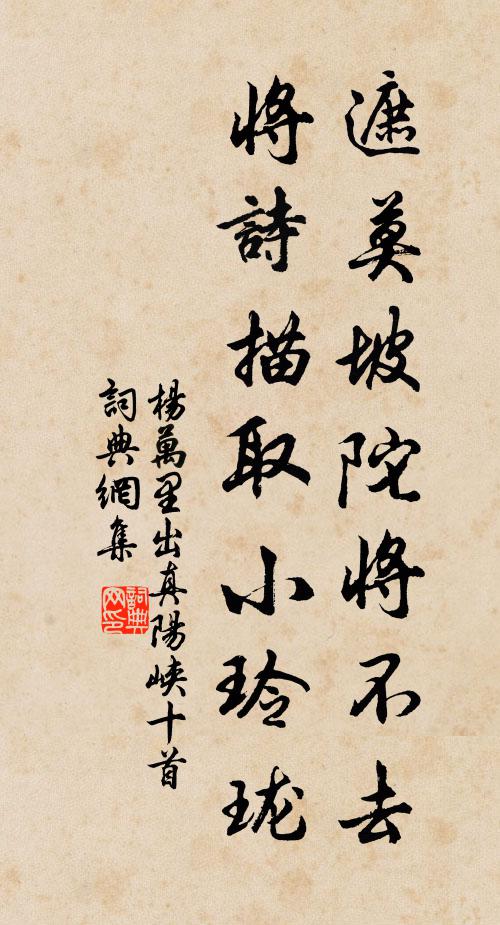 遮莫坡陀將不去
將詩描取小玲瓏
楊萬里出真陽峽十首
詞典網集
詞典網印